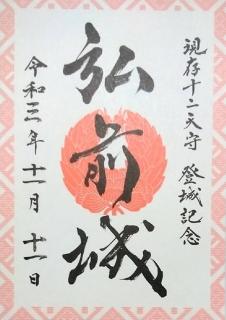 現存十二天守 登城記念
弘前城
令和三年 十一月 十一日